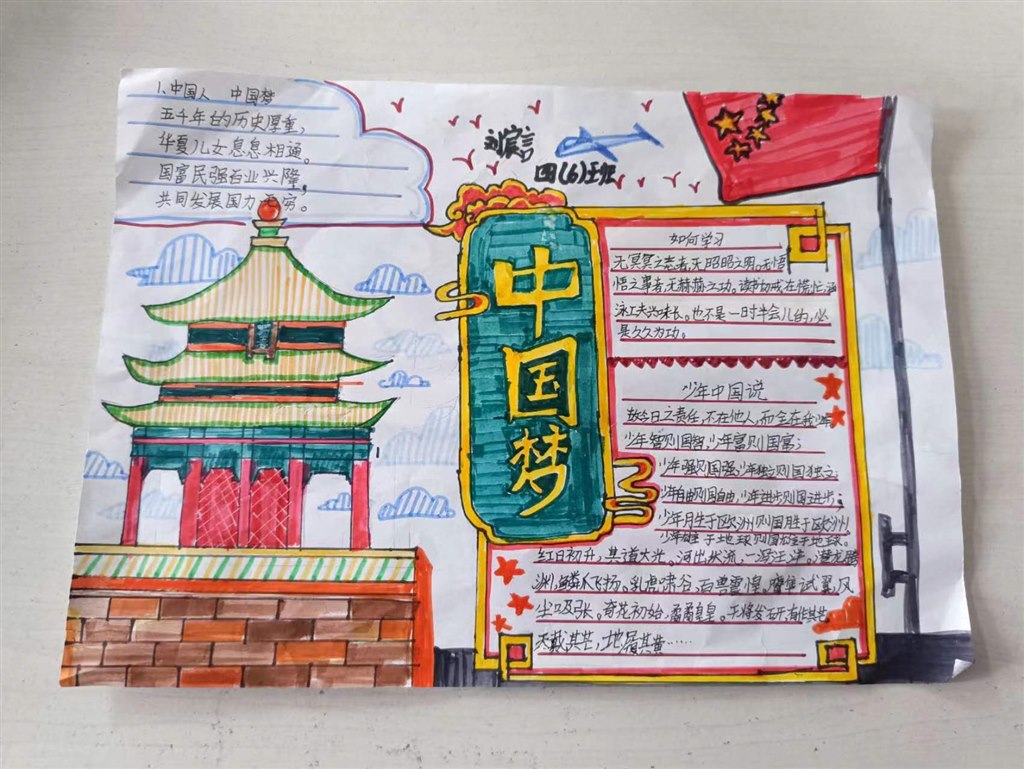 1、中国人 中国梦
五千年的历史厚重，
华夏儿女息息相通。
国富民强百业兴隆，
共同发展国力无穷。
刘宸言
四(6)班
中国梦
如何学习
无冥冥之志者,无昭昭之明,无惛
惛之事者,无赫赫之功。读书切戒在慌忙,涵
泳工夫兴味长。也不是一时半会儿的,必
是久久为功。
少年中国说
故今日之责任,不在他人,而全在我少年
少年智则国智,少年富则国富;
少年强则国强,少年独立则国独立;
少年自由则国自由,少年进步则国进步;
少年月生于欧洲则国月生于欧洲
少年雄于地球则国雄于地球。
红日初升,其道大光。河出伏流,一泻汪洋。潜龙腾
渊,鳞爪飞扬。乳虎啸谷,百兽震惶。鹰隼试翼,风
尘吸张。奇花初始,矞矞皇皇。干将发硎,有作其芒
天戴其苍,地履其黄……